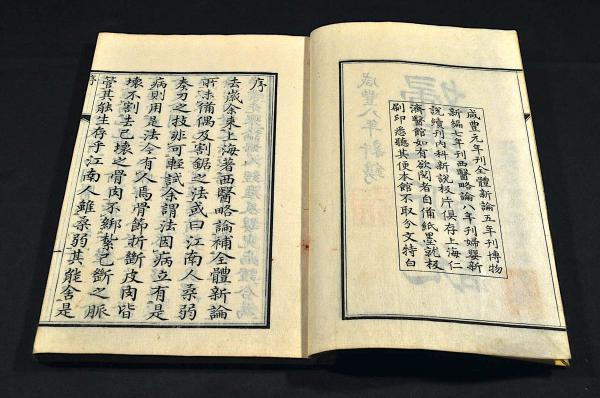 咸豐元年刊全體新論五年刊博物
新編七年刊西醫略論八年刊婦嬰新
說續刊內科新說板片俱存上海仁
濟醫館如有欲閱者自備紙墨就板
刷印悉聽其便本館不取分文特白
咸豐八年新鐫
序
去歲余來上海著西醫略論補全體新論
所未備偶及割鋸之法或曰江南人柔弱
奏刀之技非可輕試余謂法因病立有是
病則用是法今有人焉骨節折斷皮肉皆
壞不割去已壞之骨肉不綁紮已斷之脈
管其能生存乎江南人雖柔弱其能舍是
序